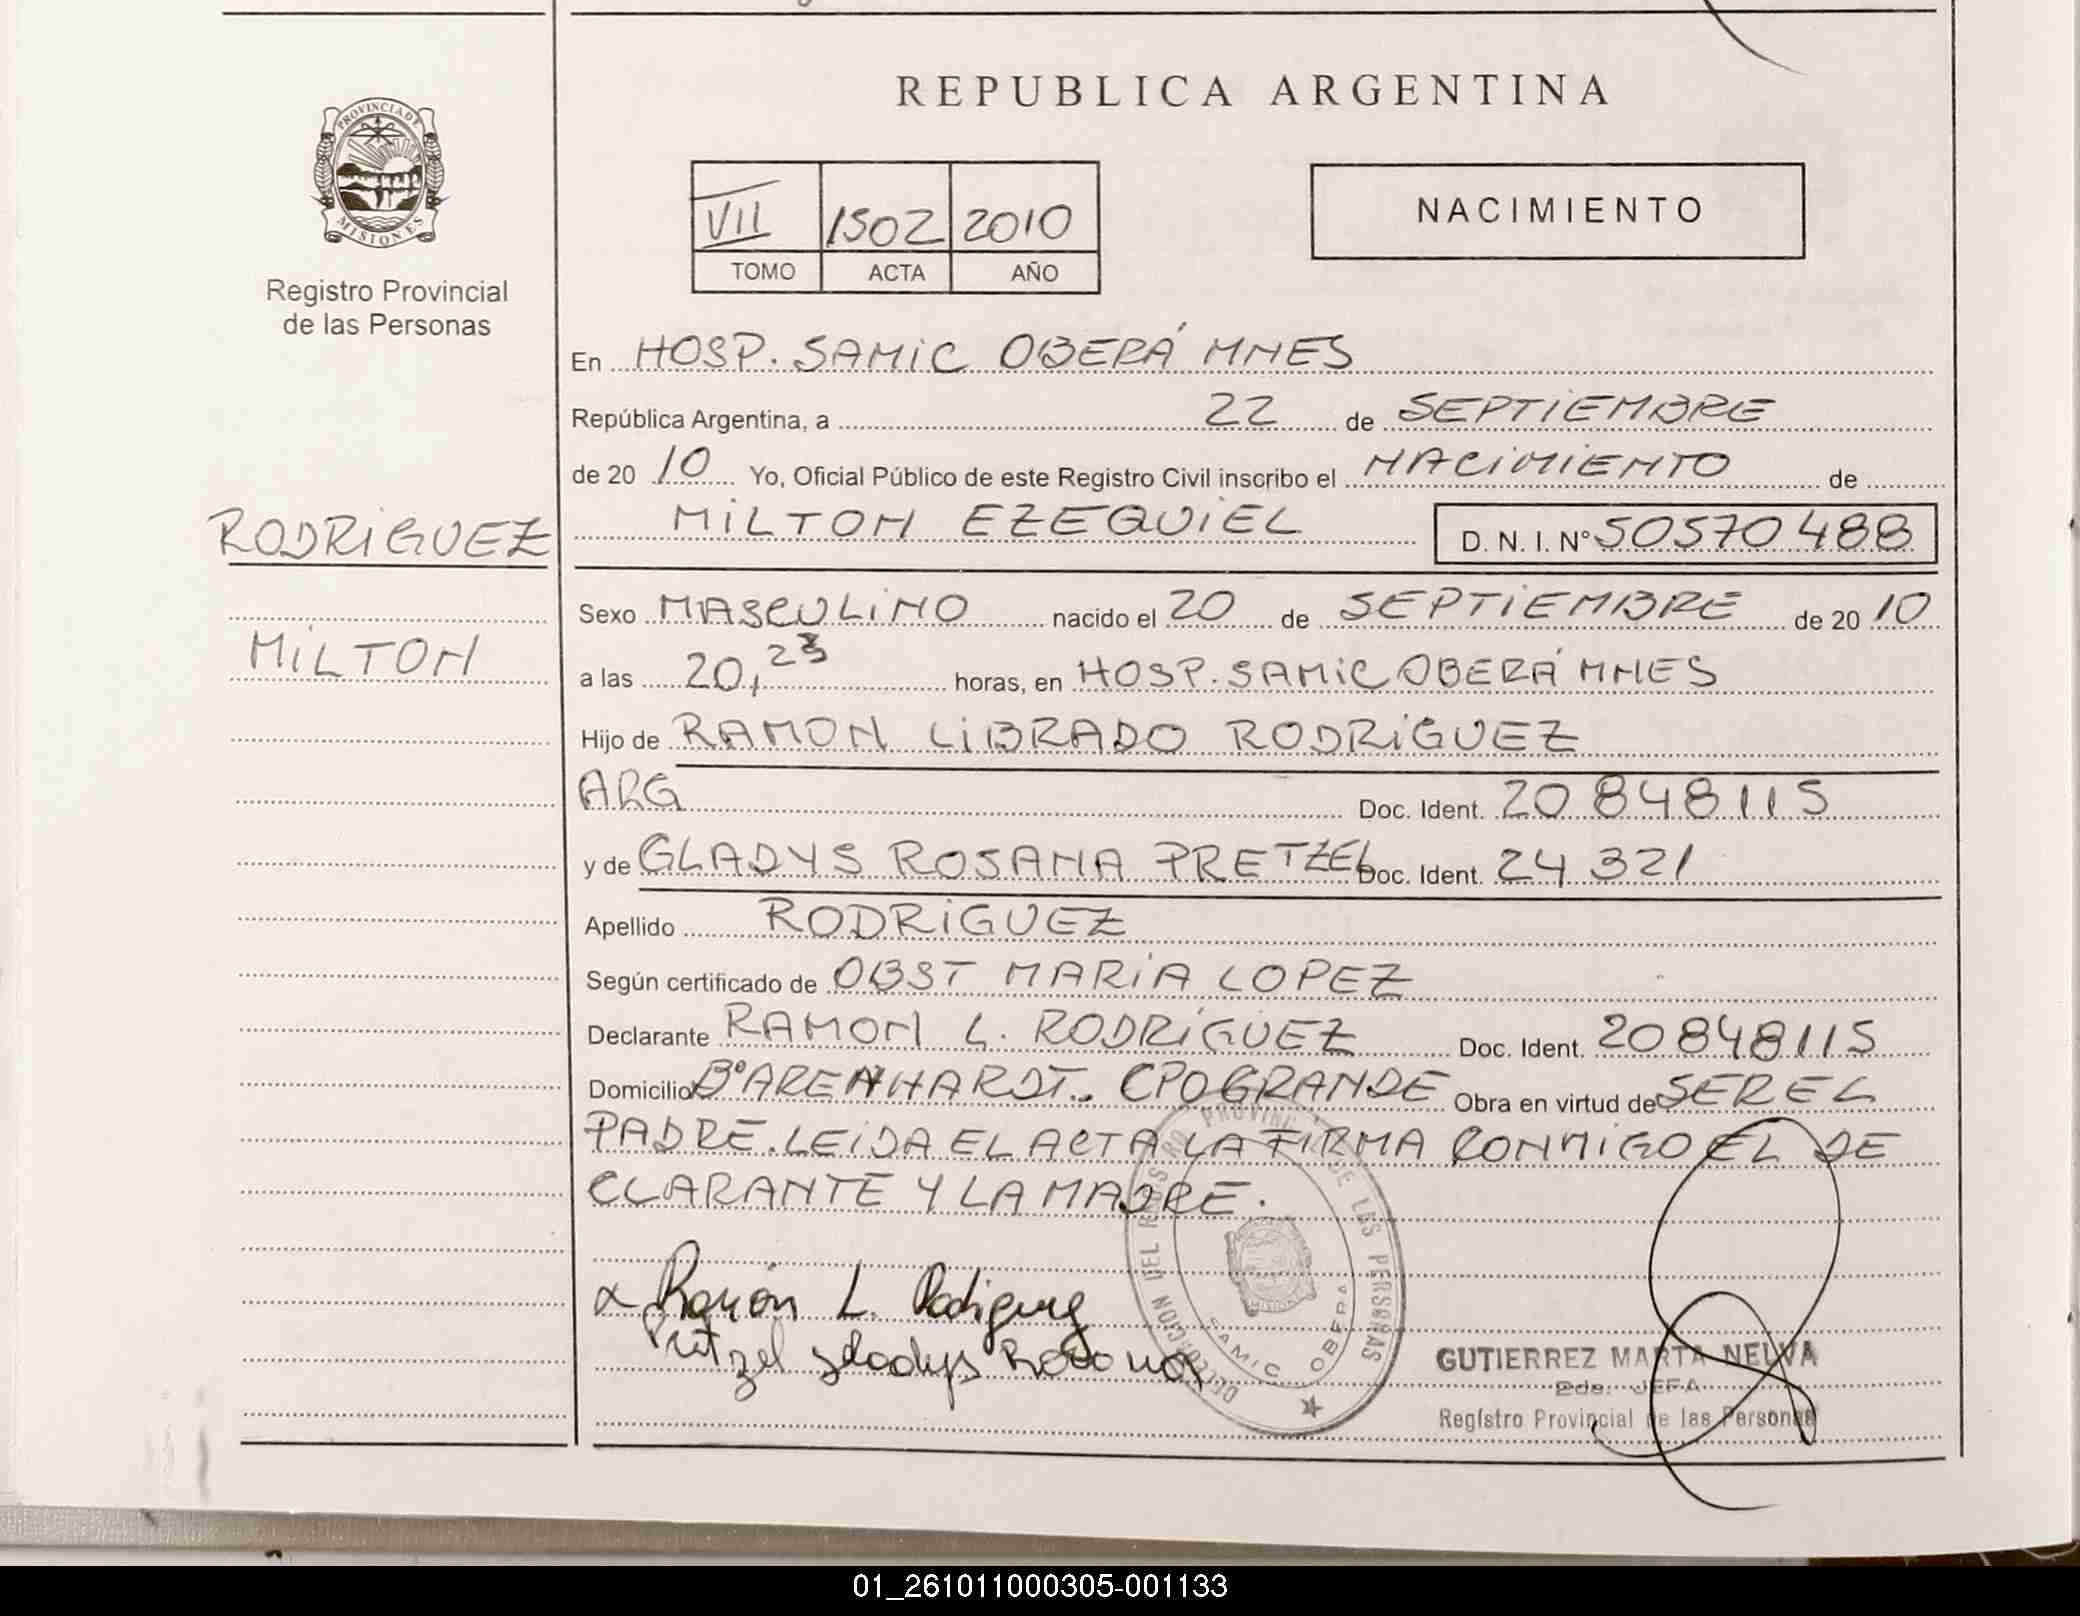 REPUBLICA ARGENTINA
PROVINCIA DE MISIONES
Registro Provincial
de las Personas
VII 1502 2010
TOMO ACTA AÑO
NACIMIENTO
En HOSP. SAMIC OBERÁ MNES
República Argentina, a 22 de SEPTIEMBRE
de 20 10 Yo, Oficial Público de este Registro Civil inscribo el NACIMIENTO de
RODRIGUEZ
MILTON EZEQUIEL D. N. I. N° 50570488
Sexo MASCULINO nacido el 20 de SEPTIEMBRE de 20 10
MILTON
a las 20, horas, en HOSP. SAMIC OBERÁ MNES
Hijo de RAMON LIBRADO RODRIGUEZ
ARG Doc. Ident. 20 848115
y de GLADYS ROSANA PRETZEL Doc. Ident. 24 321
Apellido RODRIGUEZ
Según certificado de OBST MARIA LOPEZ
Declarante RAMON L. RODRIGUEZ Doc. Ident. 20848115
Domicilio B° ARENHARDT.. CPO GRANDE Obra en virtud de SER EL
PADRE. LEIDA EL ACTA LA FIRMA CONMIGO EL DE
CLARANTE Y LA MADRE.
Ramón L. Rodriguez
Pretzel Gladys Rosana
SAMIC OBERA
GUTIERREZ MARTA NELVA
2da. JEFA
Registro Provincial de las Personas
01_261011000305-001133